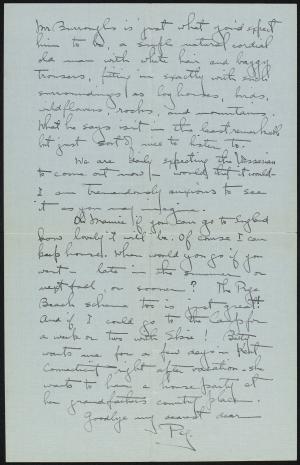 Mr. Burroughs is just what you'd expect
him to be, a simple natural cordial
old man with white hair and baggy
trousers, fitting in exactly with such
surroundings as log houses, birds,
wildflowers, rocks, and mountains.
What he says isn't in the least remarkable
but just sort of nice to listen to.
We are daily expecting the
to come out now — would that it would.
I am tremendously anxious to see
it as you may imagine.
Oh Mamie if you can go to England
how lovely it will be. Of course I can
keep house. When would you go if you
went — late in the summer or
next fall or sooner? The
Beach scheme too is just great!
And if I could go to the Camp for
a week or two with Elsie! Betty
wants me for a few days in Kent,
Connecticut right after vacation — she
wants to have a house party at
her grandfather's country place.
Goodbye my dearest dear
Peg.